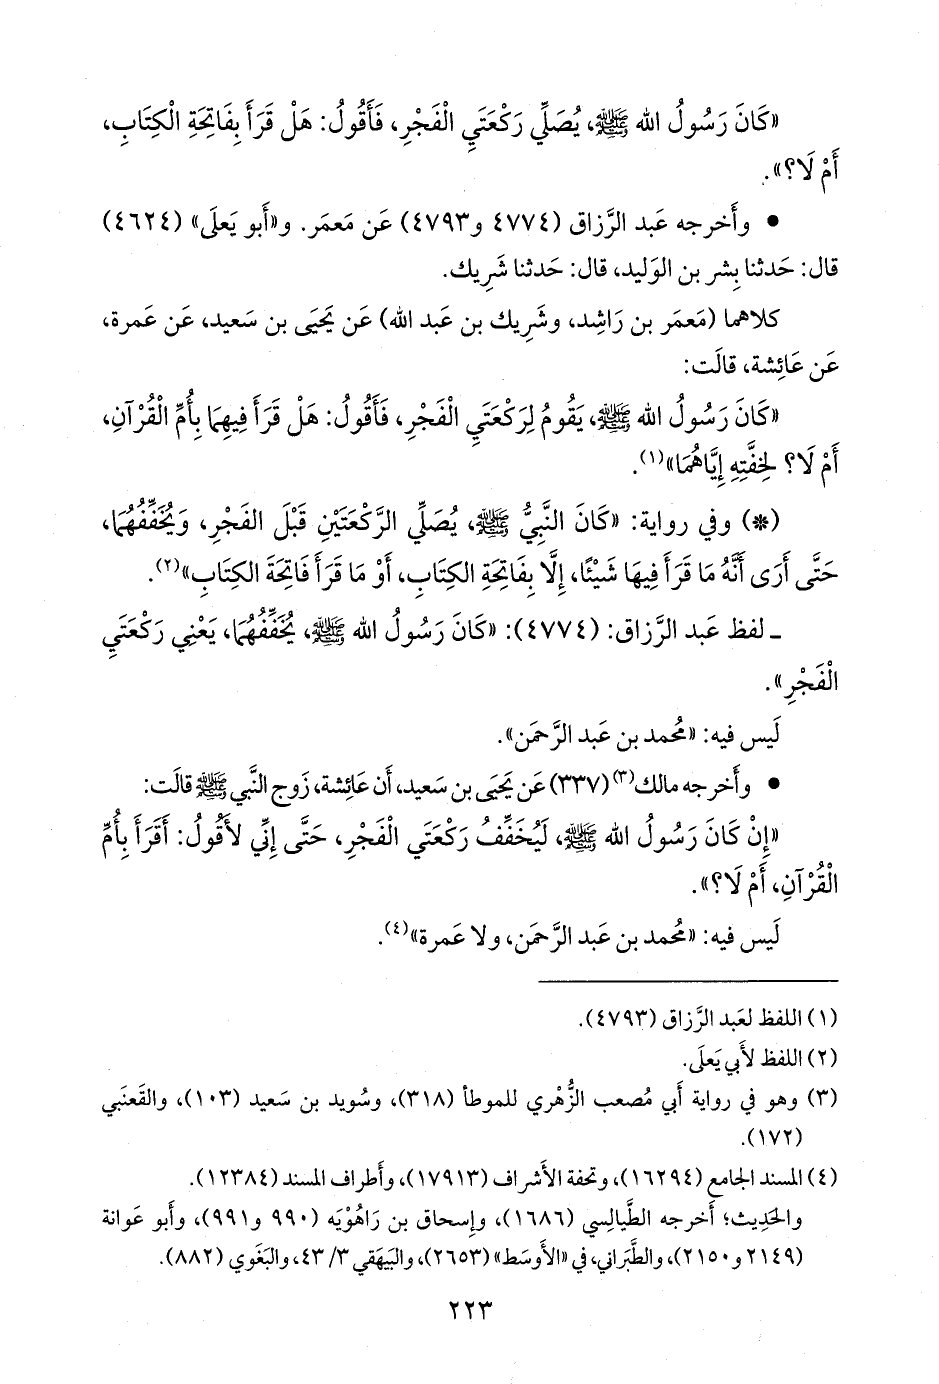 «كَانَ رَسُولُ الله ﷺ، يُصَلِّي رَكْعَتَيِ الْفَجْرِ، فَأَقُولُ: هَلْ قَرَأَ بِفَاتِحَةِ الْكِتَابِ،
أَمْ لَا؟».
• وأَخرجه عَبد الرَّزاق (٤٧٧٤ و٤٧٩٣) عَن مَعمَر. و«أَبو يَعلَى» (٤٦٢٤)
قال: حَدثنا بِشر بن الوَليد، قال: حَدثنا شَرِيك.
كلاهما (مَعمَر بن رَاشِد، وشَرِيك بن عَبد الله) عَن يَحيَى بن سَعيد، عَن عَمرة،
عَن عَائِشة، قالَت:
«كَانَ رَسُولُ الله ﷺ، يَقُومُ لِرَكْعَتَيِ الْفَجْرِ، فَأَقُولُ: هَلْ قَرَأَ فِيهِمَا بِأُمِّ الْقُرْآنِ،
أَمْ لَا؟ لِخِفَّتِهِ إِيَّاهُمَا»(١).
(*) وفي رواية: «كَانَ النَّبِيُّ ﷺ، يُصَلِّي الرَّكْعَتَيْنِ قَبْلَ الفَجْرِ، وَيُخَفِّفُهُمَا،
حَتَّى أَرَى أَنَّهُ مَا قَرَأَ فِيهَا شَيْئًا، إِلَّا بِفَاتِحَةِ الكِتَابِ، أَوْ مَا قَرَأَ فَاتِحَةَ الكِتَابِ»(٢).
ـ لفظ عَبد الرَّزاق: (٤٧٧٤): «كَانَ رَسُولُ الله ﷺ، يُخَفِّفُهُمَا، يَعْنِي رَكْعَتَيِ
الْفَجْرِ».
لَيس فيه: «مُحمد بن عَبد الرَّحمَن».
• وأَخرجه مالك(٣) (٣٣٧) عَن يَحيَى بن سَعيد، أَن عَائِشة، زَوج النَّبي ﷺ قالَت:
«إِنْ كَانَ رَسُولُ الله ﷺ، لَيُخَفِّفُ رَكْعَتَيِ الْفَجْرِ، حَتَّى إِنِّي لأَقُولُ: أَقَرَأَ بِأُمِّ
الْقُرْآنِ، أَمْ لَا؟».
لَيس فيه: «مُحمد بن عَبد الرَّحمَن، ولا عَمرة»(٤).
(١) اللفظ لعَبد الرَّزاق (٤٧٩٣).
(٢) اللفظ لأَبي يَعلَى.
(٣) وهو في رواية أَبي مُصعب الزُّهْري للموطأ (٣١٨)، وسُويد بن سَعيد (١٠٣)، والقَعنَبي
(١٧٢).
(٤) المسند الجامع (١٦٢٩٤)، وتحفة الأَشراف (١٧٩١٣)، وأَطراف المسند (١٢٣٨٤).
والحَدِيث؛ أَخرجه الطَّيالِسي (١٦٨٦)، وإِسحاق بن رَاهُوْيَه (٩٩٠ و٩٩١)، وأَبو عَوانة
(٢١٤٩ و٢١٥٠)، والطَّبَراني، في «الأَوسَط» (٢٦٥٣)، والبَيهَقي ٣/ ٤٣، والبَغَوي (٨٨٢).
٢٢٣